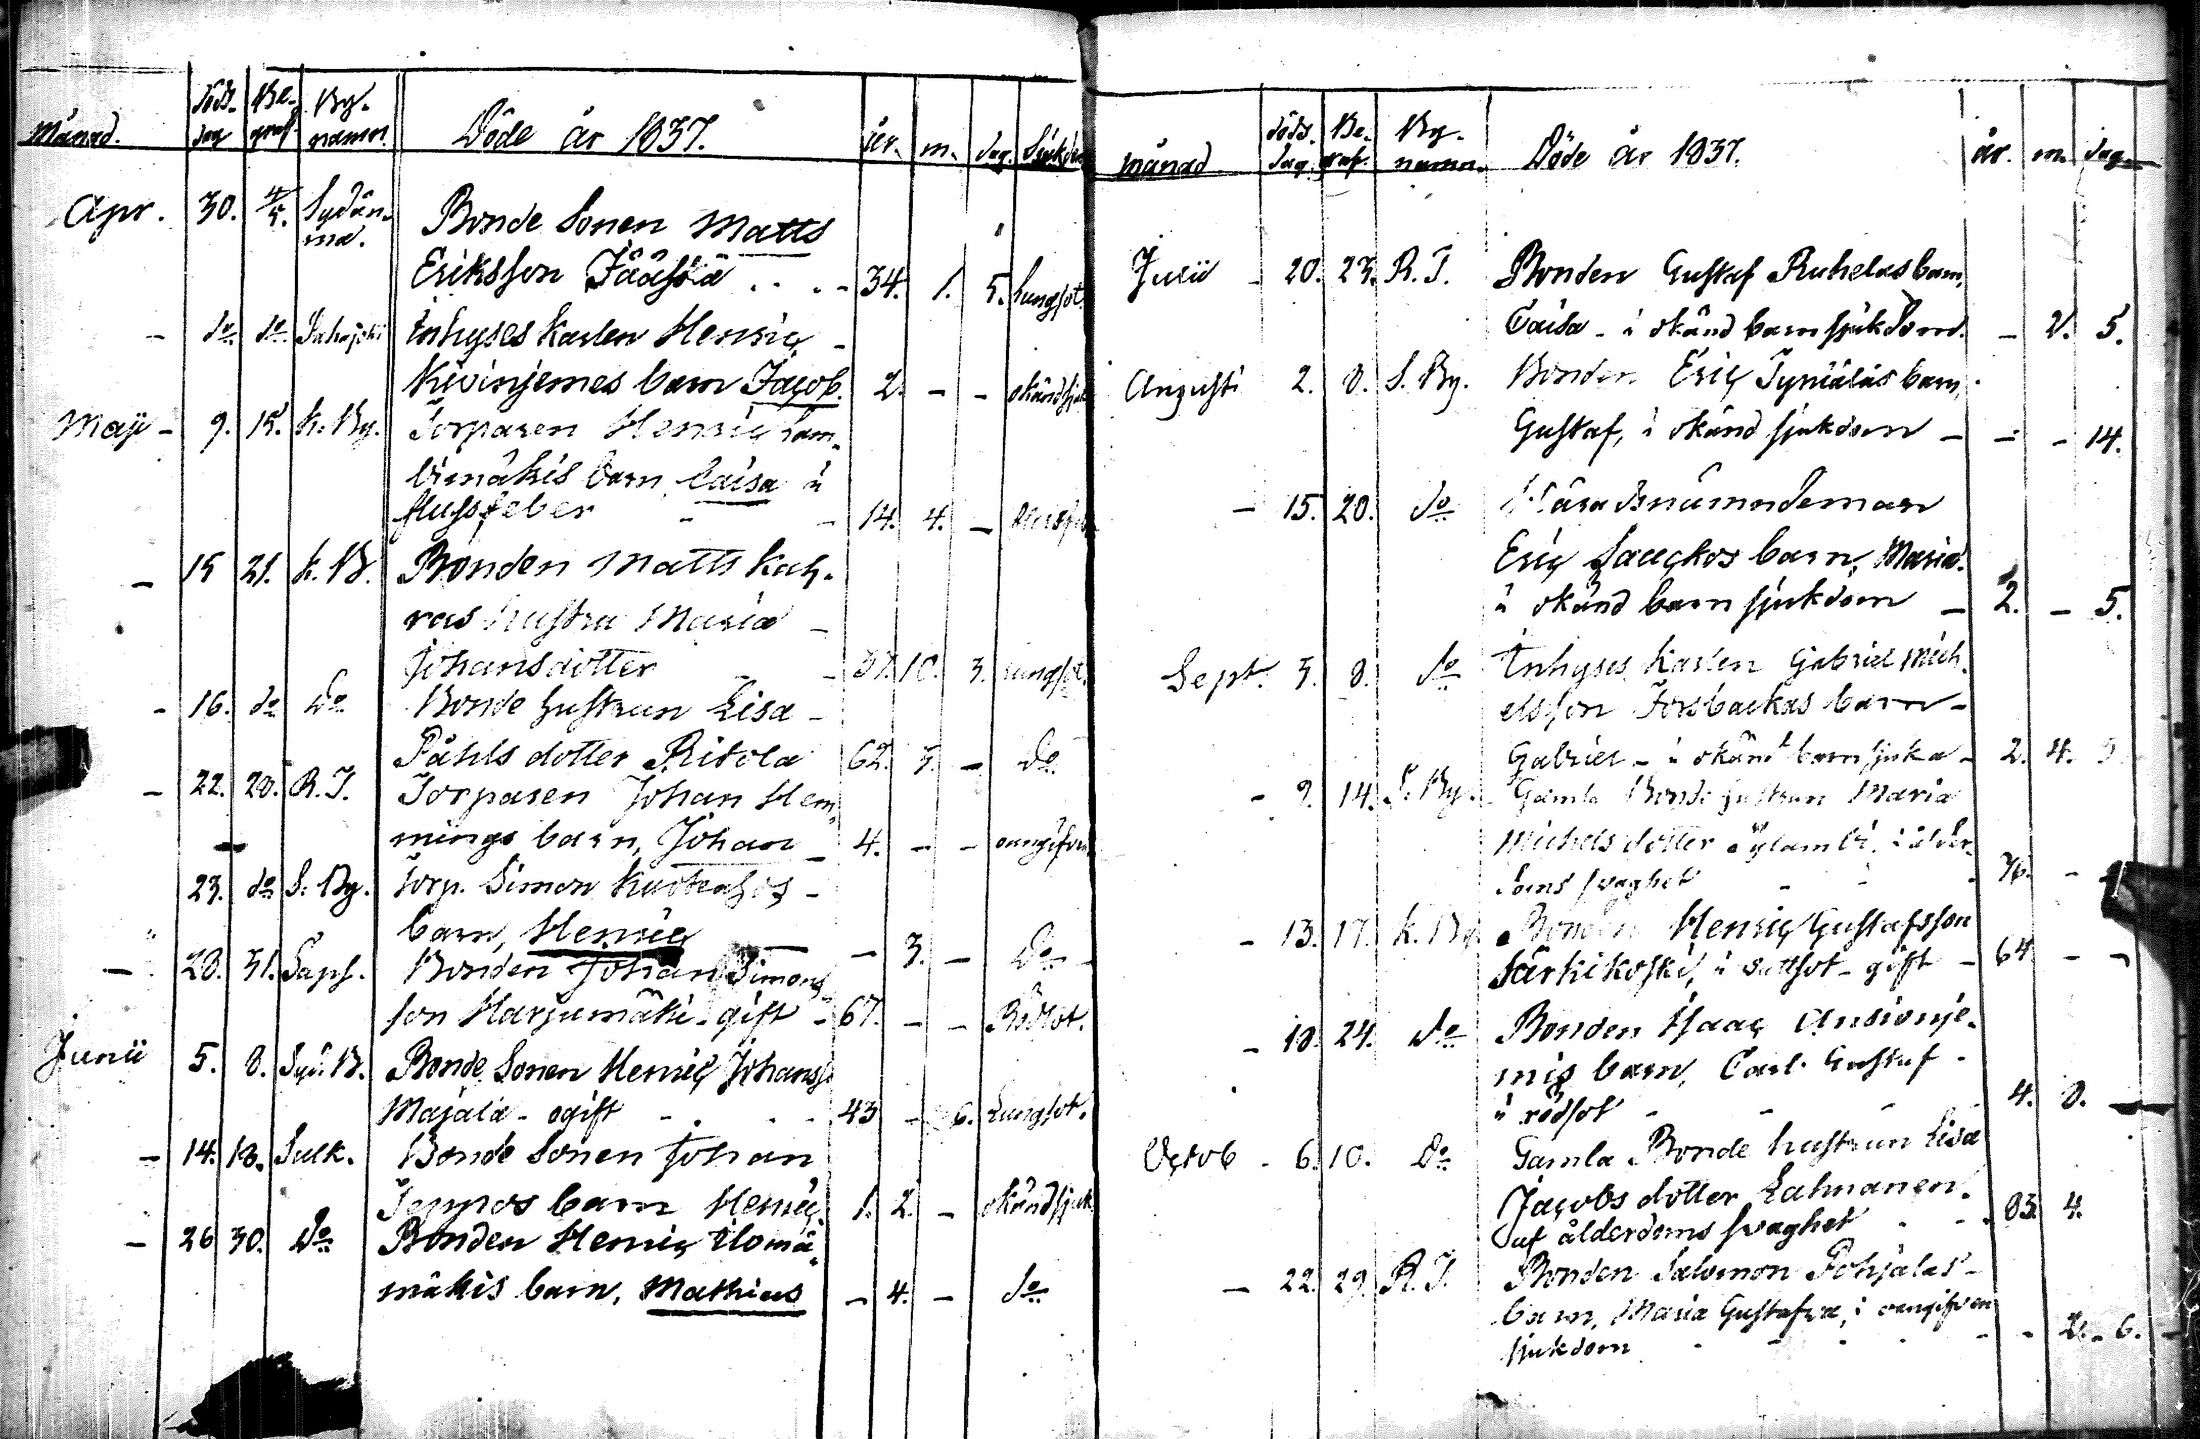 Månad. Döds- dag Be- graf. By- namn. Döde år 1837. år. m. dag. Sjukdom
Apr. 30. 4/5. Sydän- ma. Bonde Sonen Matts
Eriksson Jääskä . . . - 34. 1. 5. Lungsot.
- do do Inhyses karlen Henric -
Kivinjemes barn Jacob. 2. - - okänd sjuk
Maji - 9. 15. K. By. Torparen Henric Lam-
bimäkis barn Caisa i
flussfeber - - 14. 4. -
- 15 21. K. B. Bonden Matts Kah-
ras hustru Maria -
Johansdotter - 37. 10. 3. Lungsot.
- 16. do Do Bonde hustrun Lisa -
Påhls dotter Ritola 62. 5. - Do
- 22. 28. R. J. Torparen Johan Hem-
mings barn, Johan - 4. - - oangifven
23. do S. By. Torp. Simon
barn, Henric - 3. - Do -
- 28. 31. Saps. Bonden Johan Simons
son Harjumäki - gift - 67. - - Rödsot.
Junii 5. 8. Syd. B. Bonde Sonen Henric Johanss.
Majala - ogift - . - 43 - 6. Lungsot.
- 14. 18. Sulk. Bonde Sonen Johan
Jeppos barn Henric. 1. 2. - okänd sjuk
- 26 30. Do Bonden Henric Ilomä-
mäkis barn, Mathias - 4. - do
Månad Döds dag. Be- graf. By- namn. Döde år 1837. år. m. dag.
Julii - 20. 23. R. J. Bonden Gustaf Ruhelas barn,
Caisa - i okänd barnsjukdom. - 2. 5.
Augusti 2. 8. S. By. Bonden Eric Tyniäläs barn,
Gustaf, i okänd sjukdom - - - 14.
- 15. 20. do Häradsnämndeman
Eric Sauckos barn, Maria.
i okänd barn sjukdom - 2. - 5.
Sept. 3. 8. do Inhyses karlen Gabriel Mich-
elsson Forsbackas barn -
Gabriel - i okänd barnsjuka - 2. 4.
- 9. 14. S. By. Gamla Bonde hustrun Maria
Michels dotter i ålder-
doms svaghet - - - 76. - -
- 13. 17. K. By. Bonden Henric Gustafsson
Särkikoski, i - gift - 64 - -
- 18. 24. Do Bonden Isaac Ansionje-
mis barn, Carl Gustaf -
i rödsot - - - 4. 8. -
Octob - 6. 10. Do Gamla Bonde hustrun Lisa
Jacobs dotter Lahnanen.
af ålderdoms svaghet - - 83. 4.
- 22. 29. R. J. Bonden Salomon Pohjalas -
barn, Maria Gustafva, i oangifven
sjukdom - - - - - - 2. - 6.